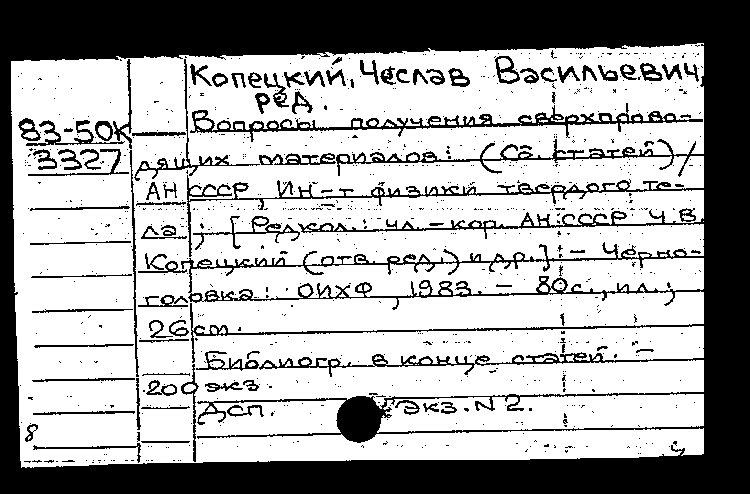 Копецкий, Чеслав Васильевич,
ред.
83-50К
3327
Вопросы получения сверхпрово-
дящих материалов: (Сб. статей) /
АН СССР, Ин-т физики твердого те-
ла; [Редкол.: чл.-кор. АН СССР Ч.В.
Копецкий (отв. ред.) и др.]. - Черно-
головка: ОИХФ, 1983. - 80с., ил.;
26 см.
Библиогр. в конце статей. -
200 экз.
Дсп. Экз. N 2.
8